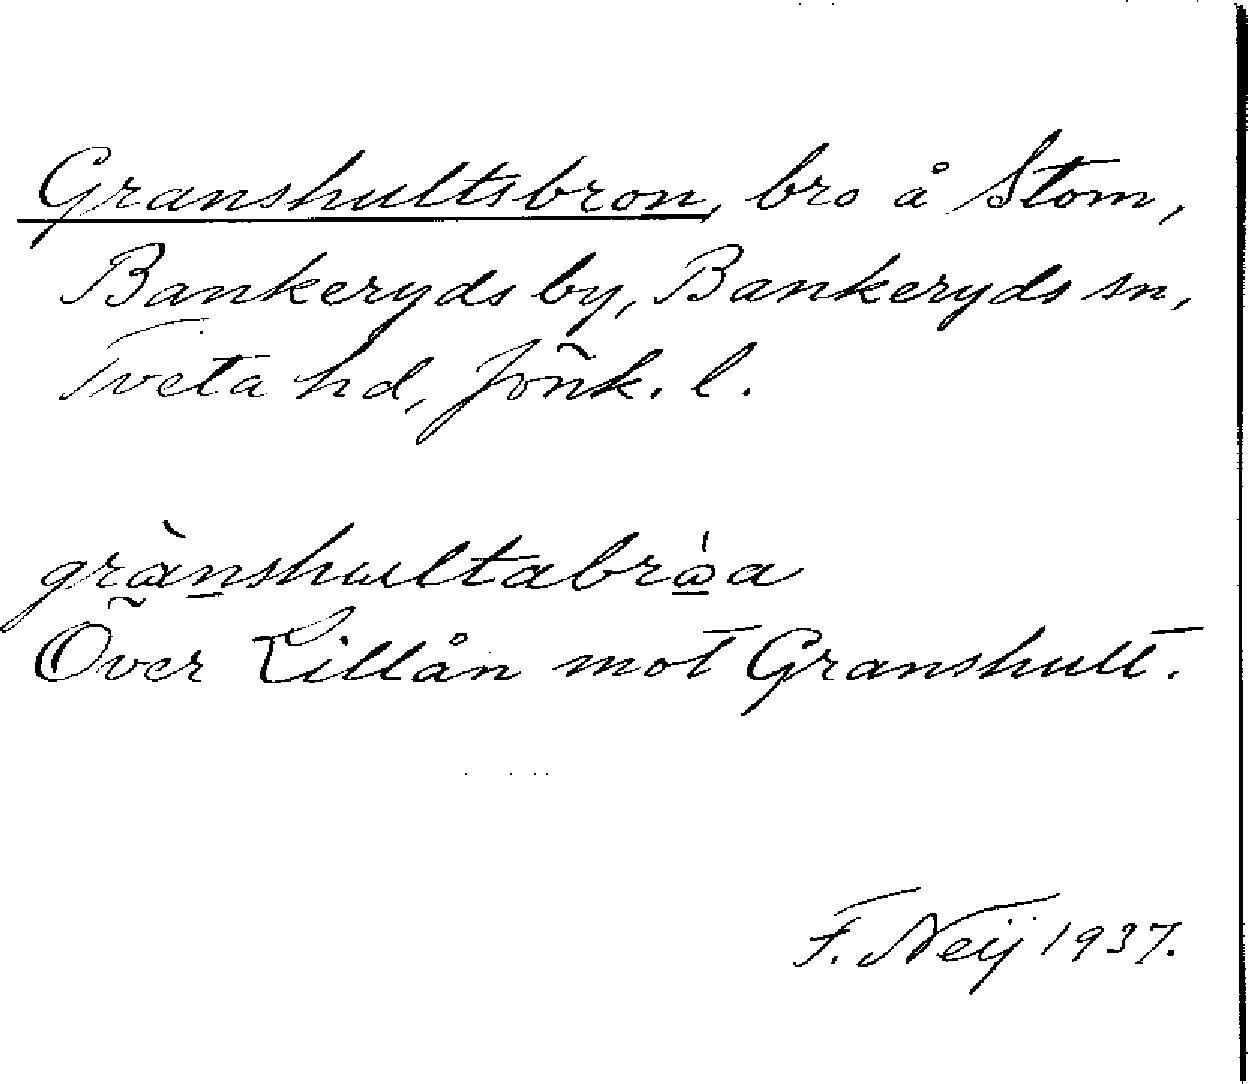 Granshultsbron, bro å Stom,
Bankeryds by, Bankeryds sn,
Tveta hd, Jönk. l.
grànshultabrò̲a
Över Lillån mot Granshult.
F. Neij 1937.